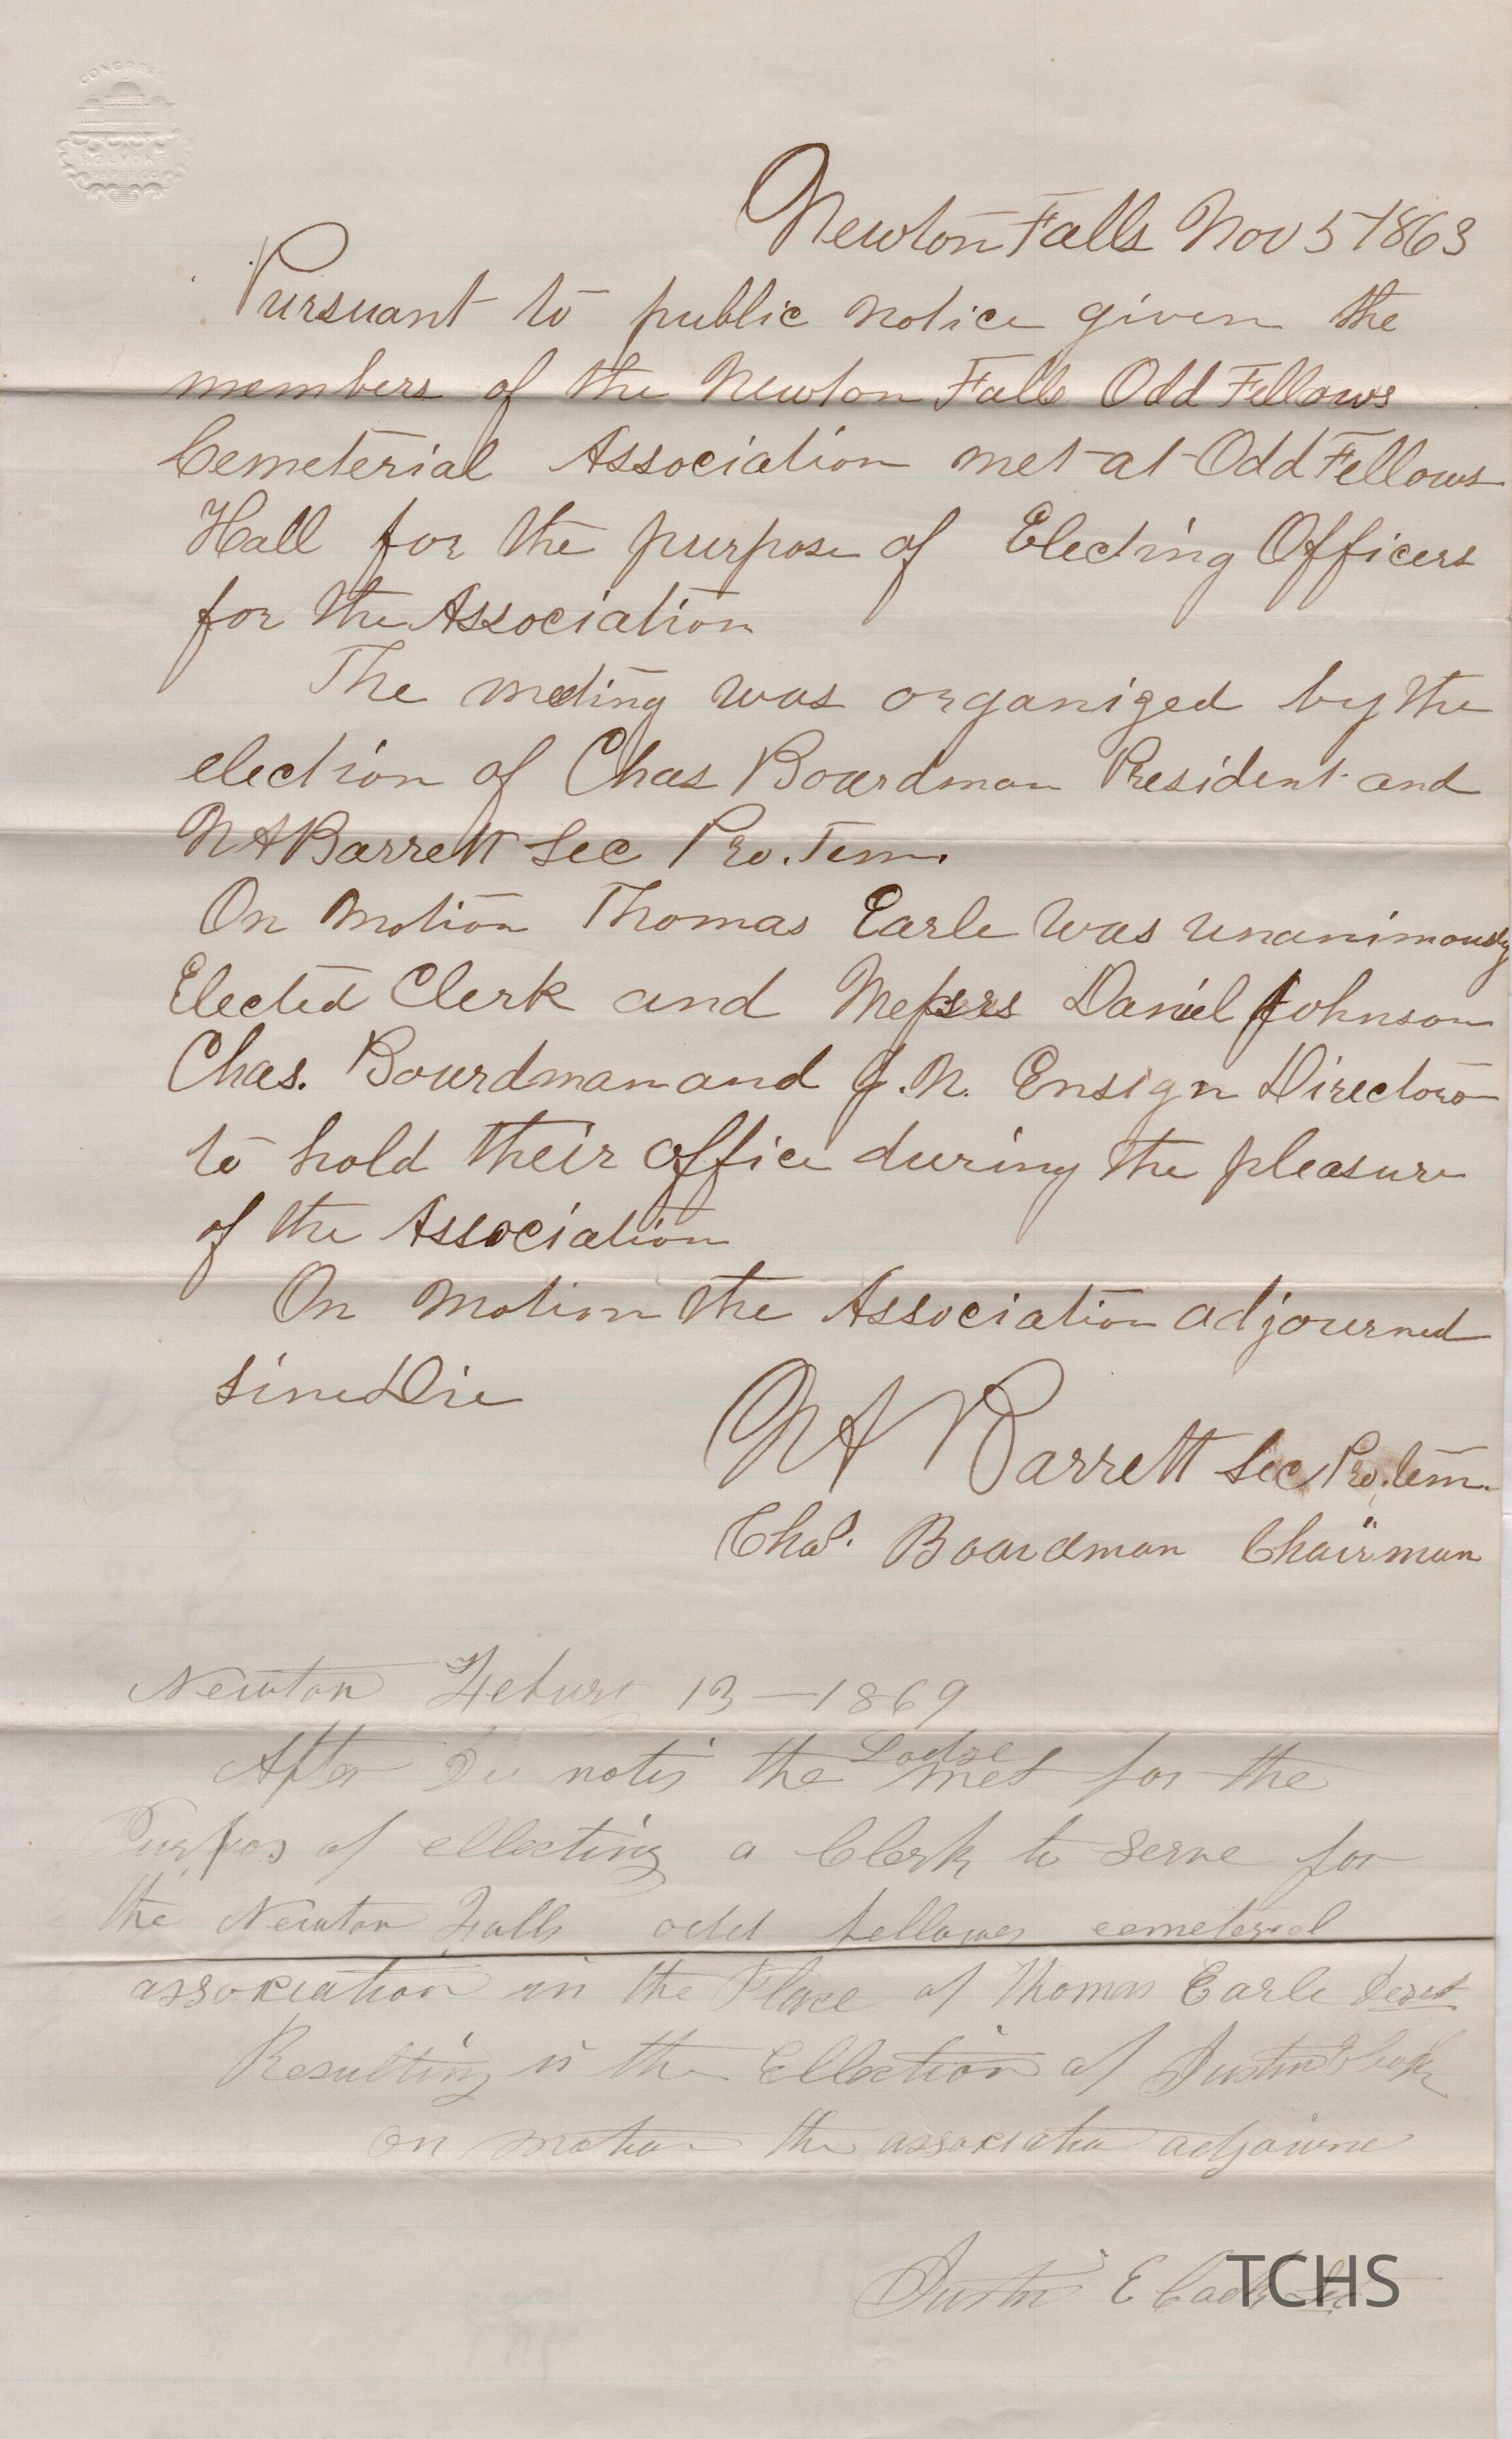 CONGRESS
HOLYOKE
PAPER CO
Newton Falls Nov 5 1863
Pursuant to public notice given the
members of the Newton Falls Odd Fellows
Cemeterial Association met at Odd Fellows
Hall for the purpose of Electing Officers
for the Association
The meeting was organized by the
election of Chas Boardman President and
N A Barrett Sec Pro. Tem.
On motion Thomas Earle was unanimously
Elected Clerk and Messrs Daniel Johnson
Chas. Boardman and J. N. Ensign Directors
to hold their office during the pleasure
of the Association
On motion the Association adjourned
sine Die
N A Barrett Sec Pro. tem.
Chas. Boardman Chairman
Newton 13 - 1869
After Du notis the Lodge met for the
Purpos of ellecting a Clerk to serve for
the Newton Falls odd fellows cemeterial
association in the Place of Thomas Earle
Resulting in the Ellection of Justin E
on motion the association adjourne
Justin E
TCHS